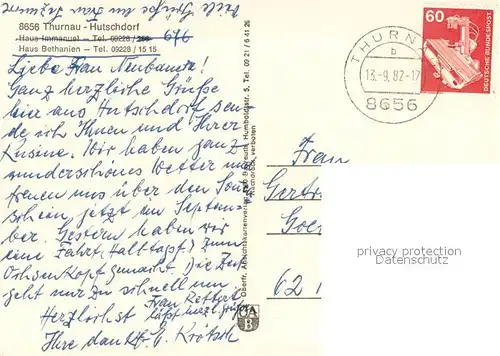 viele Grüße an Frau
8656 Thurnau - Hutschdorf
Haus Immanuel — Tel. 09228/
Haus Bethanien — Tel. 09228/15 15
676
Liebe Frau Neubauer!
Ganz herzliche Grüße
hier aus Hutschdorf sen-
de ich Ihnen und Ihrer
Kusine. Wir haben ganz
wunderschönes Wetter und
freuen uns über den Sonn
schein jetzt im Septem-
ber. Gestern haben wir
eine Fahrt (Halbtags) zum
Ochsenkopf gemacht. Die Zeit
geht nur zu schnell um
Frau Rettert
Herzlichst läßt herzl. grüßen
Ihre dankb. E. Krötsch
Oberfr. Ansichtskartenverlag, 8580 Bayreuth, Humboldtstr. 5, Tel. 09 21 / 6 41 26
Nachdruck verboten
OA
B
THURN
b
13.-9. 82-17
8656
60
DEUTSCHE BUNDESPOST
Frau
Gertr
Goe
62
privacy protection
Datenschutz